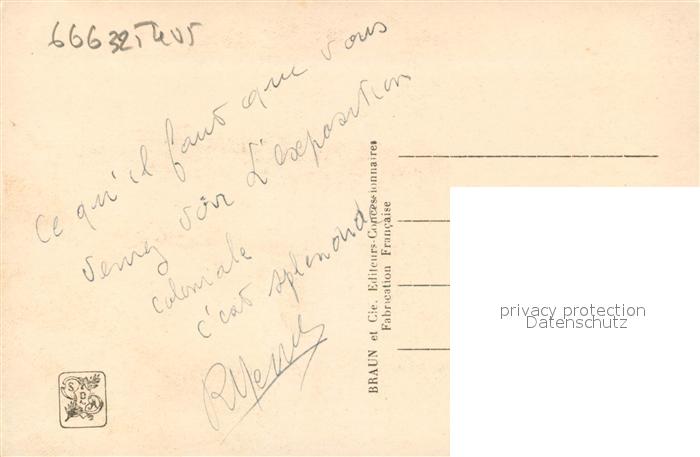 66632
Ce qu'il faut que vous
venez voir L'exposition
coloniale
c'est splendid
BRAUN et Cie. Editeurs-Concessionnaires
Fabrication Française
privacy protection
Datenschutz